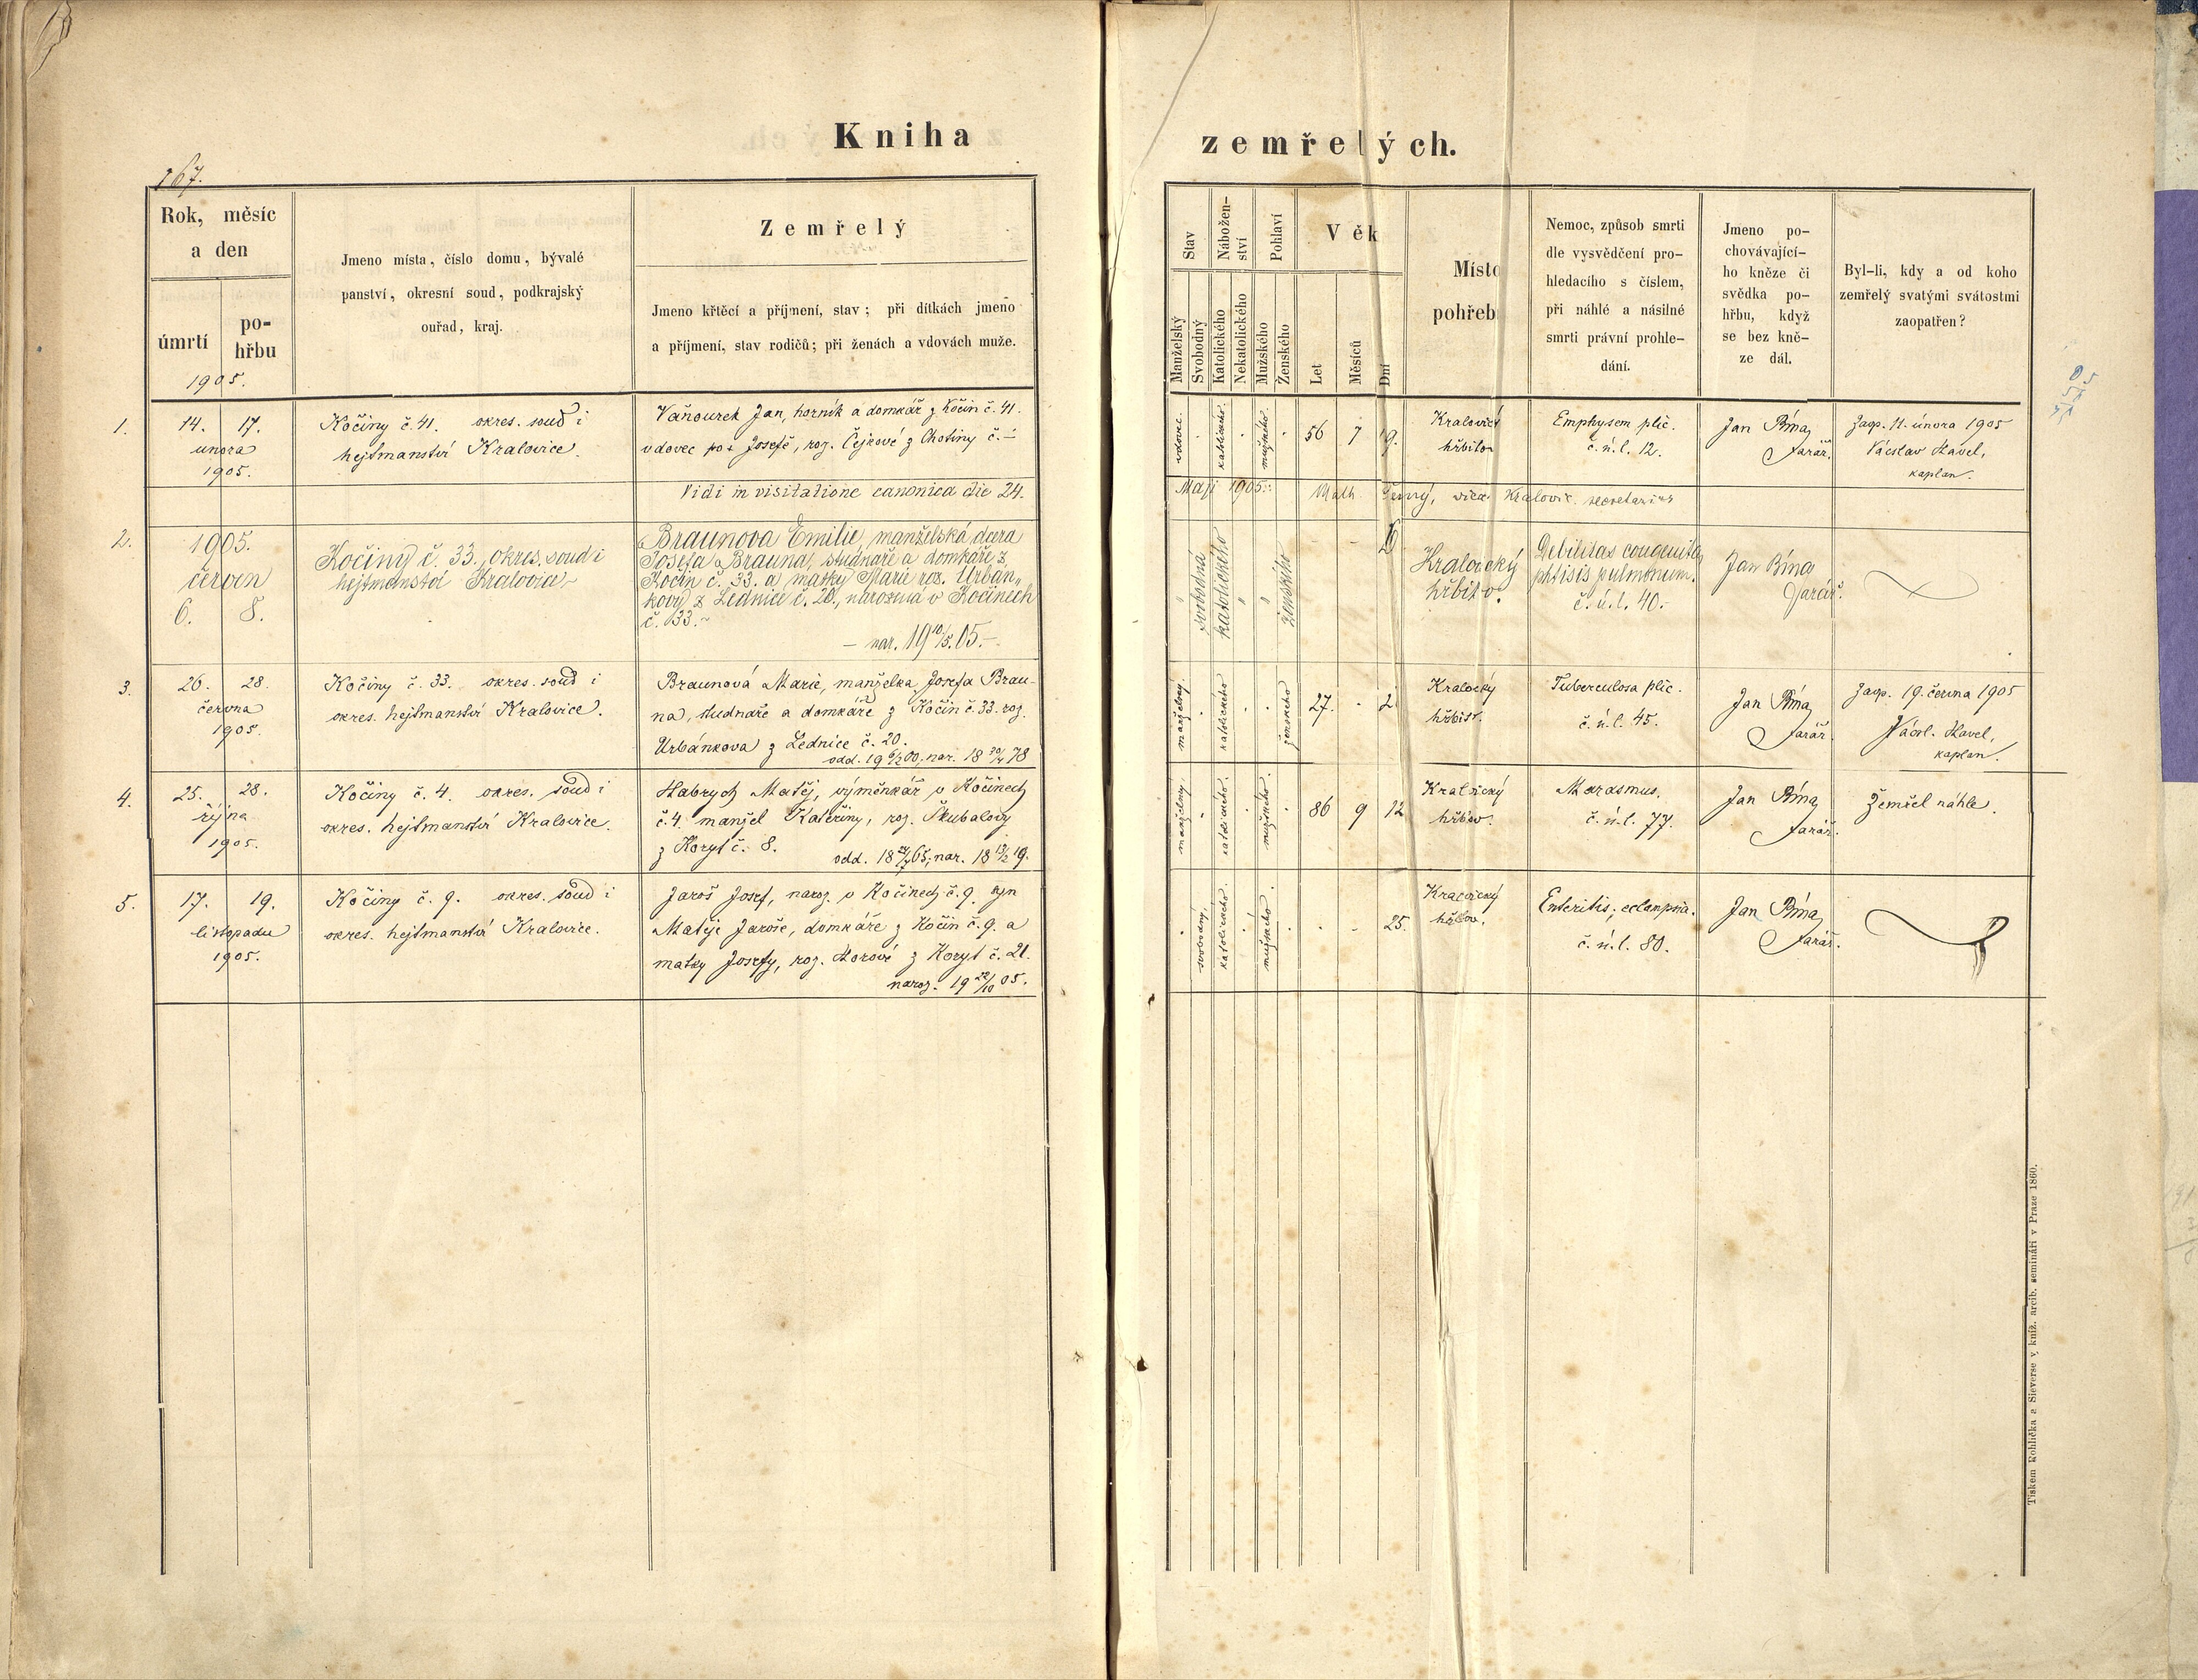 Kniha zemřelých.
167.
Rok, měsíc
a den
úmrtí
po-
hřbu
1905.
Jmeno místa, číslo domu, bývalé
panství, okresní soud, podkrajský
ouřad, kraj.
Zemřelý
Jmeno křtěcí a příjmení, stav; při dítkách jmeno
a příjmení, stav rodičů; při ženách a vdovách muže.
Stav
Manželský
Svobodný
Nábožen-
ství
Katolického
Nekatolického
Pohlaví
Mužského
Ženského
Věk
Let
Měsíců
Dní
Místo
pohřeb
Nemoc, způsob smrti
dle vysvědčení pro-
hledacího s číslem,
při náhlé a násilné
smrti právní prohle-
dání.
Jmeno po-
chovávající-
ho kněze či
svědka po-
hřbu, když
se bez kně-
ze dál.
Byl-li, kdy a od koho
zemřelý svatými svátostmi
zaopatřen?
1.
14. 17.
února
1905.
Kočiny č. 41. okres. soud i
hejtmanství Kralovice.
Vaňourek Jan, horník a domkář z Kočin č. 41.
vdovec po Josefě, roz. Čejkové z Chotiny č. -
vdovec.
katolického.
mužského.
56 7 9.
Kralovický
hřbitov
Emphysem plic.
č. ú. l. 12.
Jan Bíma,
farář.
Zaop. 11. února 1905
Václav Havel,
kaplan.
Vidi in visitatione canonica die 24.
Maji 1905. Math. vica. Kralovic. secretarius
2.
1905.
červen
6. 8.
Kočiny č. 33, okres. soud i
hejtmanství Kralovice
Braunova Emilie, manželská dcera
Josefa Brauna, studnaře a domkáře z
Kočin č. 33. a matky Marie roz. Urbán-
kovy z Lednice č. 20., narozená v Kočinech
č. 33.
- nar. 19 10/5. 05. -
svobodná
katolického
ženského
Kralovický
hřbitov.
Debilitas congenita,
phtisis pulmonum.
č. ú. l. 40. -
Jan Bíma
farář.
3.
26. 28.
června
1905.
Kočiny č. 33. okres. soud i
okres. hejtmanství Kralovice.
Braunová Marie, manželka Josefa Brau-
na, studnaře a domkáře z Kočin č. 33. roz.
Urbánkova z Lednice č. 20.
odd. 19 6/2 00, nar. 18 30/4 78
manželský.
katolického
ženského
27. - 2
Kralovický
hřbit.
Tuberculosa plic.
č. ú. l. 45.
Jan Bíma,
farář.
Zaop. 19. června 1905
Václ. Havel,
kaplan.
4.
25. 28.
října
1905.
Kočiny č. 4. okres. soud i
okres. hejtmanství Kralovice.
Habrych Matěj, výměnkář v Kočinech
č. 4. manžel Kateřiny, roz. Škubalovy
z Koryt č. 8. odd. 18 65, nar. 18 13/2 19.
manželský.
katolického.
mužského.
86 9 12
Kralovický
hřbitov.
Marasmus.
č. ú. l. 77.
Jan Bíma,
farář.
Zemřel náhle.
5.
17. 19.
listopadu
1905.
Kočiny č. 9. okres. soud i
okres. hejtmanství Kralovice.
Jaroš Josef, naroz. v Kočinech č. 9. syn
Matěje Jaroše, domkáře z Kočin č. 9. a
matky Josefy, roz. Horové z Koryt č. 21.
naroz. 19 22/10 05.
svobodný.
katolického
mužského
25.
Kralovický
hřbitov.
Enteritis, eclampsia.
č. ú. l. 80.
Jan Bíma,
farář.
Tiskem Rohlíčka a Sieverse v kníž. arcib. semináři v Praze 1860.